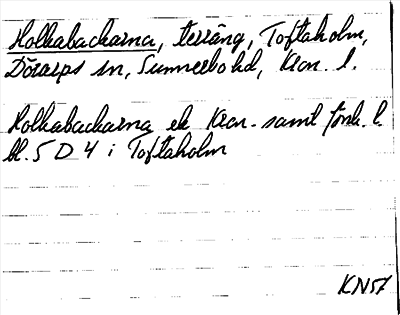 Holkabackarna, terräng, Toftaholm,
Dörarps sn, Sunnerbo hd, Kron. l.
Holkabackarna ek Kron. samt Jönk. l.
bl. 5 D 4 i Toftaholm
KN57